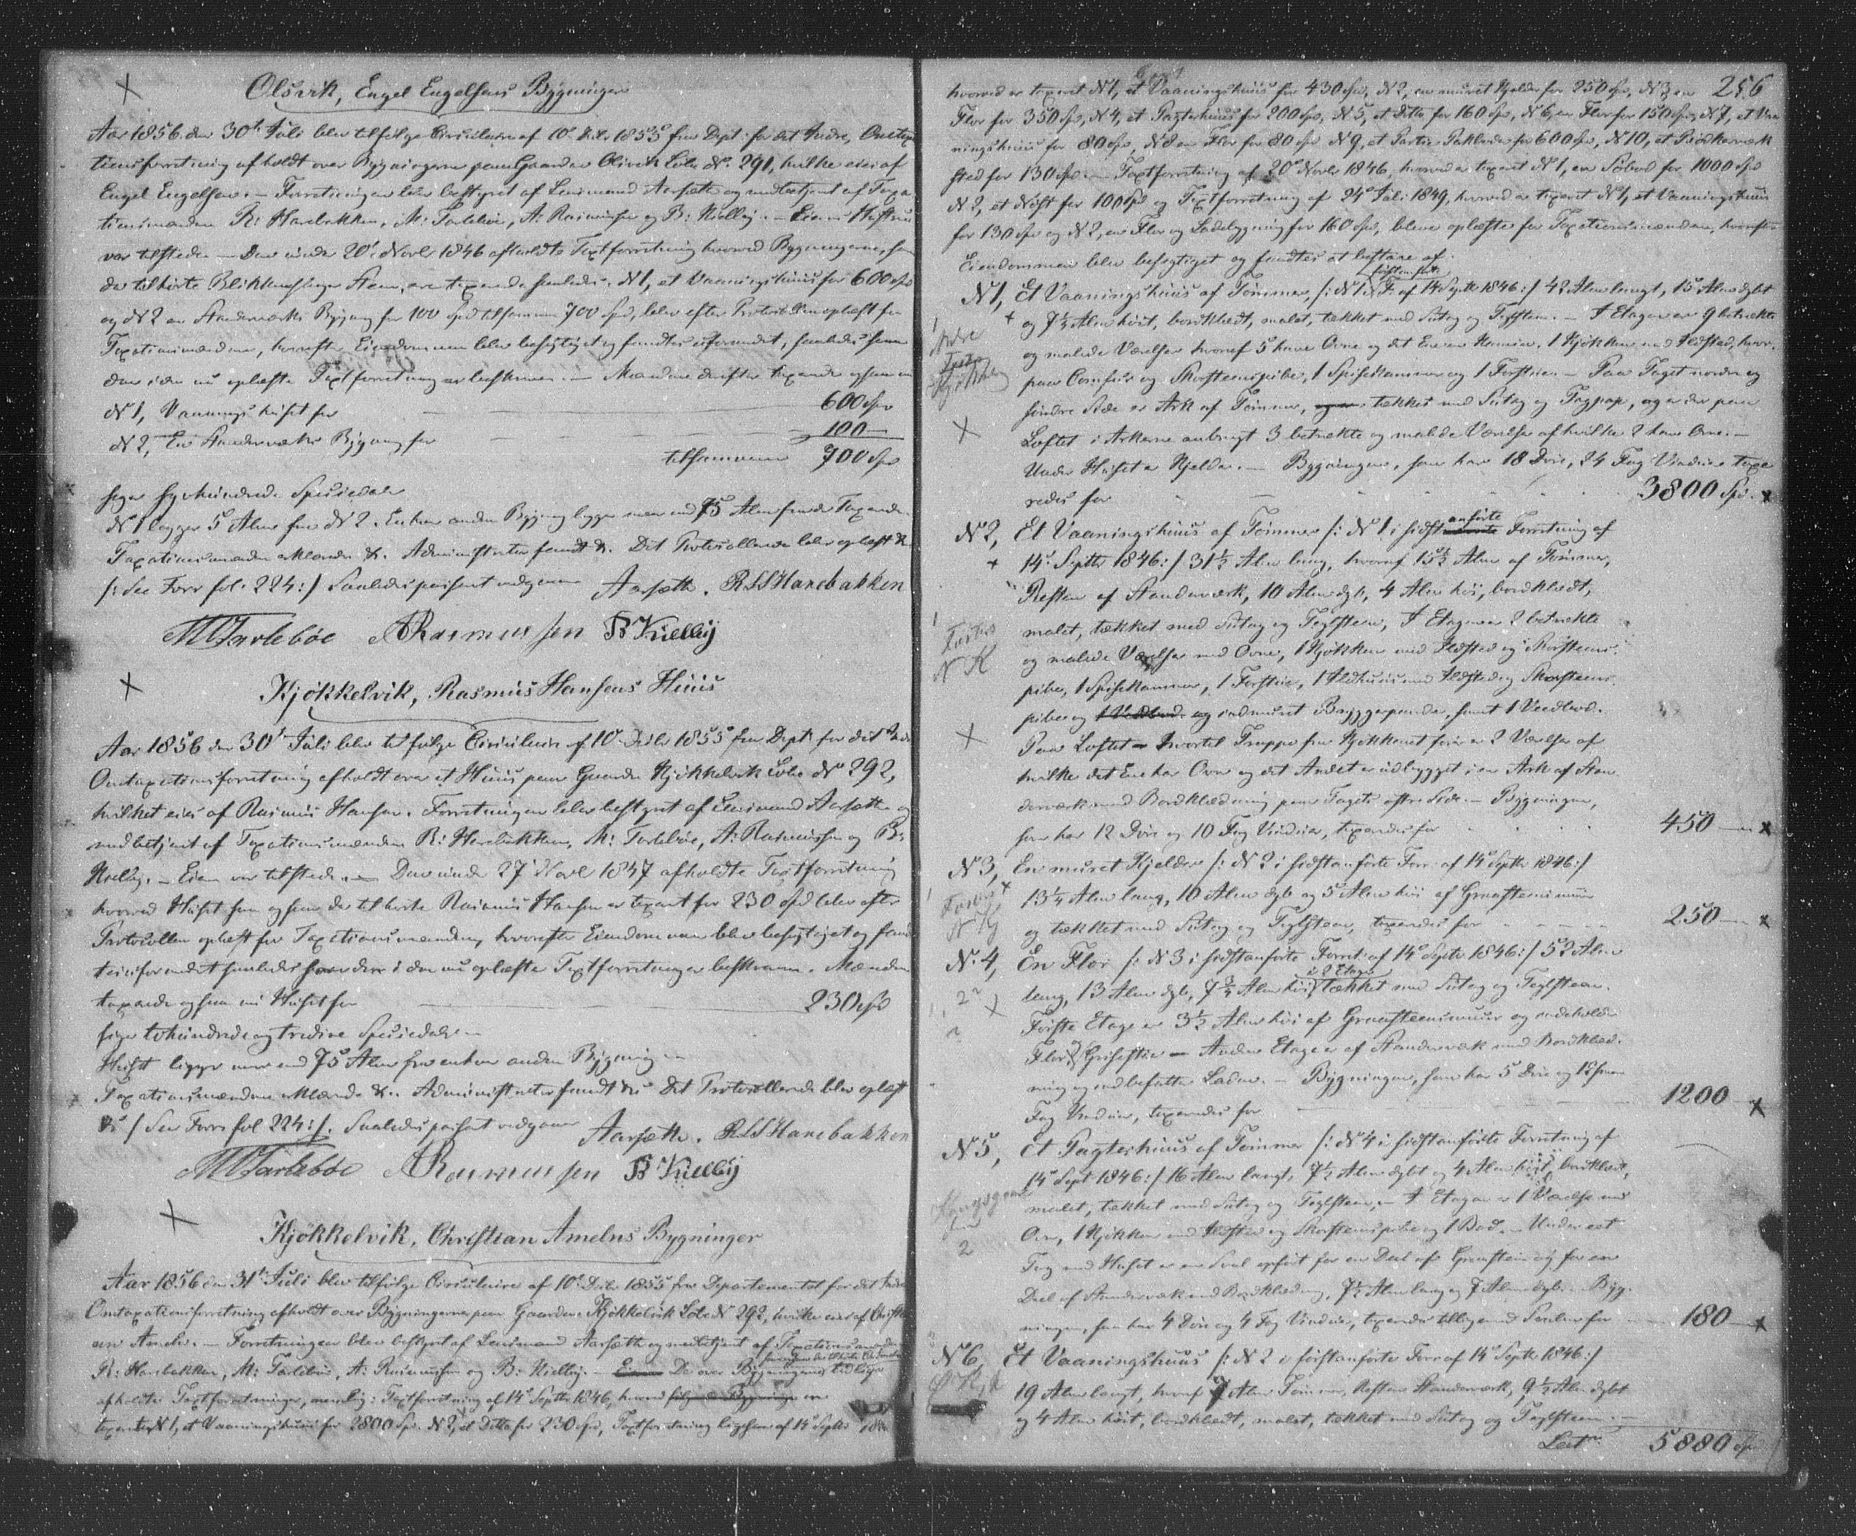 Olsvik, Engel Engelsens Bygninger
Aar 1856 den 30t Juli blev tilfølge Circulaire af 10d Dcbr. 1855 fra Dept: for det Indre, Omtaxa-
tionsforretning afholdt over Bygningerne paa Gaarden Olsvik Løbe No. 291, hvilke eies af
Engel Engelsen. – Forretningen blev bestyret af Lensmand Aarsæth og medbetjent af Taxa-
tionsmændene R: Hanebakken, M: Tarlebøe, A: Rasmussen og B: Kielby. – Eieren
var tilstede. – Den under 20d Novbr 1846 afholdte Taxtforretning hvorved Bygningerne, som
da tilhørte Blikkenslager Steen, ere taxerede saaledes: N 1, et Vaaningshuus for 600 Spd
og N 2 en Standerværks Bygning for 100 Spd tilsammen 700 Spd, blev efter Protocollen oplæst for
Taxationsmændene, hvorefter Eiendommen blev besigtiget og fandtes uforandret, saaledes som
den i den nu oplæste Taxtforretning er beskreven. – Mændene derefter taxerede ogsaa nu
N 1, Vaaningshuset for 600 Spd
N 2, En Standerværks Bygning for 100 –
tilsammen 700 Spd
siger syvhundrede Speciedaler
N 1 ligger 5 Alen fra N 2. Enhver anden Bygning ligger mere end 75 Alen fra de Taxerede.
Taxationsmændene erklærede &. Administrator fandt &. Det Protocollerede blev oplæst &
/: See Forr fol. 224 :/ Saaledes passeret vedgaaes Aarsæth. RLSHanebakken
MTarlebøe ARasmussen B Kielby
Kjøkkelvik, Rasmus Hansens Huus
Aar 1856 den 30t Juli blev tilfølge Circulaire af 10d Dcbr 1855 fra Dept: for det Indre
Omtaxationsforretning afholdt over et Huus paa Gaarden Kjøkkelvik Løbe No 292,
hvilket eies af Rasmus Hansen. Forretningen blev bestyret af Lensmand Aarsæth og
medbetjent af Taxationsmændene R: Hanebakken, M: Tarlebøe, A: Rasmussen og B:
Kielby. – Eieren var tilstede. – Den under 27d Novbr 1847 afholdte Taxtforretning
hvorved Huset som ogsaa da tilhørte Rasmus Hansen er taxeret for 230 Spd blev efter
Protocollen oplæst for Taxationsmændene, hvorefter Eiendommen blev besigtiget og fand-
tes uforandret saaledes som den i den nu oplæste Taxtforretning er beskreven. Mændene
taxerede ogsaa nu Huset for 230 Spd
siger tohundrede og tredive Speciedaler –
Huset ligger mere end 75 Alen fra enhver anden Bygning –
Taxationsmændene erklærede &. Administrator fandt &. Det Protocollerede blev oplæst
& /: See Forr fol 224 :/. Saaledes passeret vedgaaes Aarsæth. RLSHanebakken
MTarlebøe ARasmussen B Kielby
Kjøkkelvik, Christian Amelns Bygninger
Aar 1856 den 31t Juli blev tilfølge Circulaire af 10d Dcbr 1855 fra Departementet for det Indre
Omtaxationsforretning afholdt over Bygningerne paa Gaarden Kjøkkelvik Løbe N 292, hvilke eies af Christi-
an Ameln. – Forretningen blev bestyret af Lensmand Aarsæth og medbetjent af Taxationsmændene
R: Hanebakken, M: Tarlebøe, A: Rasmussen og B: Kielby. – De over Bygningerne tidligere
afholdte Taxtforretninger, nemlig: Taxtforretning af 14d Septbr 1846, hvorved følgende Bygninger ere
taxerede N 1, et Vaaningshuus for 2800 Spd. N 2, et Ditto for 230 Spd, Taxtforretning ligesaa af 14d Septbr 1846
256
hvorved er taxeret N 1, et Vaaningshuus for 430 Spd, N 2, en muret Kjelder for 250 Spd, N 3 en
Flor for 350 Spd, N 4, et Pagterhuus for 200 Spd, N 5, et Ditto for 160 Spd, N 6, en Flor for 150 Spd, N 7, et Vaa-
ningshuus for 80 Spd, N 8 en Flor for 80 Spd N 9, et Partie Pakboder for 600 Spd, N 10, et Bødkerværk-
sted for 130 Spd. – Taxtforretning af 20d Novbr 1846, hvorved er taxeret N 1, en Søbod for 1000 Spd
N 2, et Nøst for 100 Spd og Taxtforretning af 24d Juli 1849, hvorved er taxeret N 1, et Vaaningshuus
for 130 Spd og N 2, en Flor og Ladebygning for 160 Spd, bleve oplæste for Taxationsmændene, hvorefter
Eiendommen blev besigtiget og fandtes at bestaae af:
N 1, Et Vaaningshuus af Tømmer /: N 1 i førstanførte F. af 14 Septb 1846 :/ 42 Alen langt, 15 Alen dybt
og 7½ Alen høit, bordklædt, malet, tækket med Sutag og Teglsteen. – I Etagen er 9 betrukne
og malede Værelser hvoraf 5 have Ovne og det Ene en Kamin, 1 Kjøkken med Ildsted, hvor-
paa Comfur og Skorsteenspibe, 1 Spisekammer og 1 Forstue. – Paa Taget nordre og
søndre Side er Ark af Tømmer, tækket med Sutag og Tagpap, og er der paa
Loftet i Arkerne anbragt 3 betrukne og malede Værelser af hvilke 2 have Ovne. –
Under Huset er Kjelder. – Bygningen, som har 18 Døre, 24 Fag Vinduer taxe-
redes for 3800 Spd. x
N 2, Et Vaaningshuus af Tømmer /: N 1 i sidstanførte Forretning af
14d Septbr 1846 :/ 31½ Alen lang, hvoraf 15½ Alen af Tømmer,
Resten af Standerværk, 10 Alen dyb, 4 Alen høi, bordklædt,
malet, tækket med Sutag og Teglsteen, I Etagen er 2 betrukne
og malede Værelser med Ovne, 1 Kjøkken med Ildsted og Skorsteens-
pibe, 1 Spisekammer, 1 Forstue, 1 Ildhuus med Ildsted og Skorsteens-
pibe og 1 Vedbod og indmuret Bryggepande, samt 1 Vedbod.
Paa Loftet – hvortil Trappe fra Kjøkkenet fører – er 2 Værelser af
hvilke det Ene har Ovn og det Andet er udbygget i en Ark af Stan-
derværk med Bordklædning paa Tagets østre Side. – Bygningen,
som har 12 Døre og 10 Fag Vinduer, taxeredes for 450 – x
N 3, En muret Kjelder /: N 2 i sidstanførte Forr: af 14d Septbr 1846 :/
13¼ Alen lang, 10 Alen dyb og 5 Alen høi af Graasteensmuur
og tækket med Sutag og Teglsteen, taxeredes for 250 – x
N. 4, En Flor /: N 3 i sidstanførte Forret: af 14d Septbr 1846 :/ 52 Alen
lang, 13 Alen dyb, 7¾ Alen høi i 2 Etager tækket med Sutag og Teglsteen.
Første Etage er 3½ Alen høi af Graasteensmuur og indeholder
Flor og Grisestie – Anden Etage er af Standerværk med Bordklæd-
ning og indbefatter Laden. – Bygningen, som har 5 Døre og 12 smaa
Fag Vinduer, taxeredes for 1200 – x
N 5, Et Pagterhuus af Tømmer /: N 4 i sidstanførte Forretning af
14d Sept 1846 :/ 16 Alen langt, 7½ Alen dybt og 4 Alen høit, bordklædt,
malet, tækket med Sutag og Teglsteen, – I Etagen er 1 Værelse med
Ovn, 1 Kjøkken med Ildsted og Skorsteenspibe og 1 Bod. – Under eet
Tag med Huset er en Sval opført for en Deel af Graasteen og for en
Deel af Standerværk med Bordklædning, 7½ Alen lang og 7 Alen dyb. – Byg-
ningen, som har 4 Døre og 4 Fag Vinduer, taxeredes tilligemed Svalen for 180 – x
N 6, Et Vaaningshuus /: N 2 i førstanførte Forr: af 14d Septb 1846 :/
19 Alen langt, hvoraf 7 Alen Tømmer, Resten Standerværk, 9½ Alen dybt
og 4 Alen høit, bordklædt, malet, tækket med Sutag og Teglsteen. –
Latr 5880 Spd